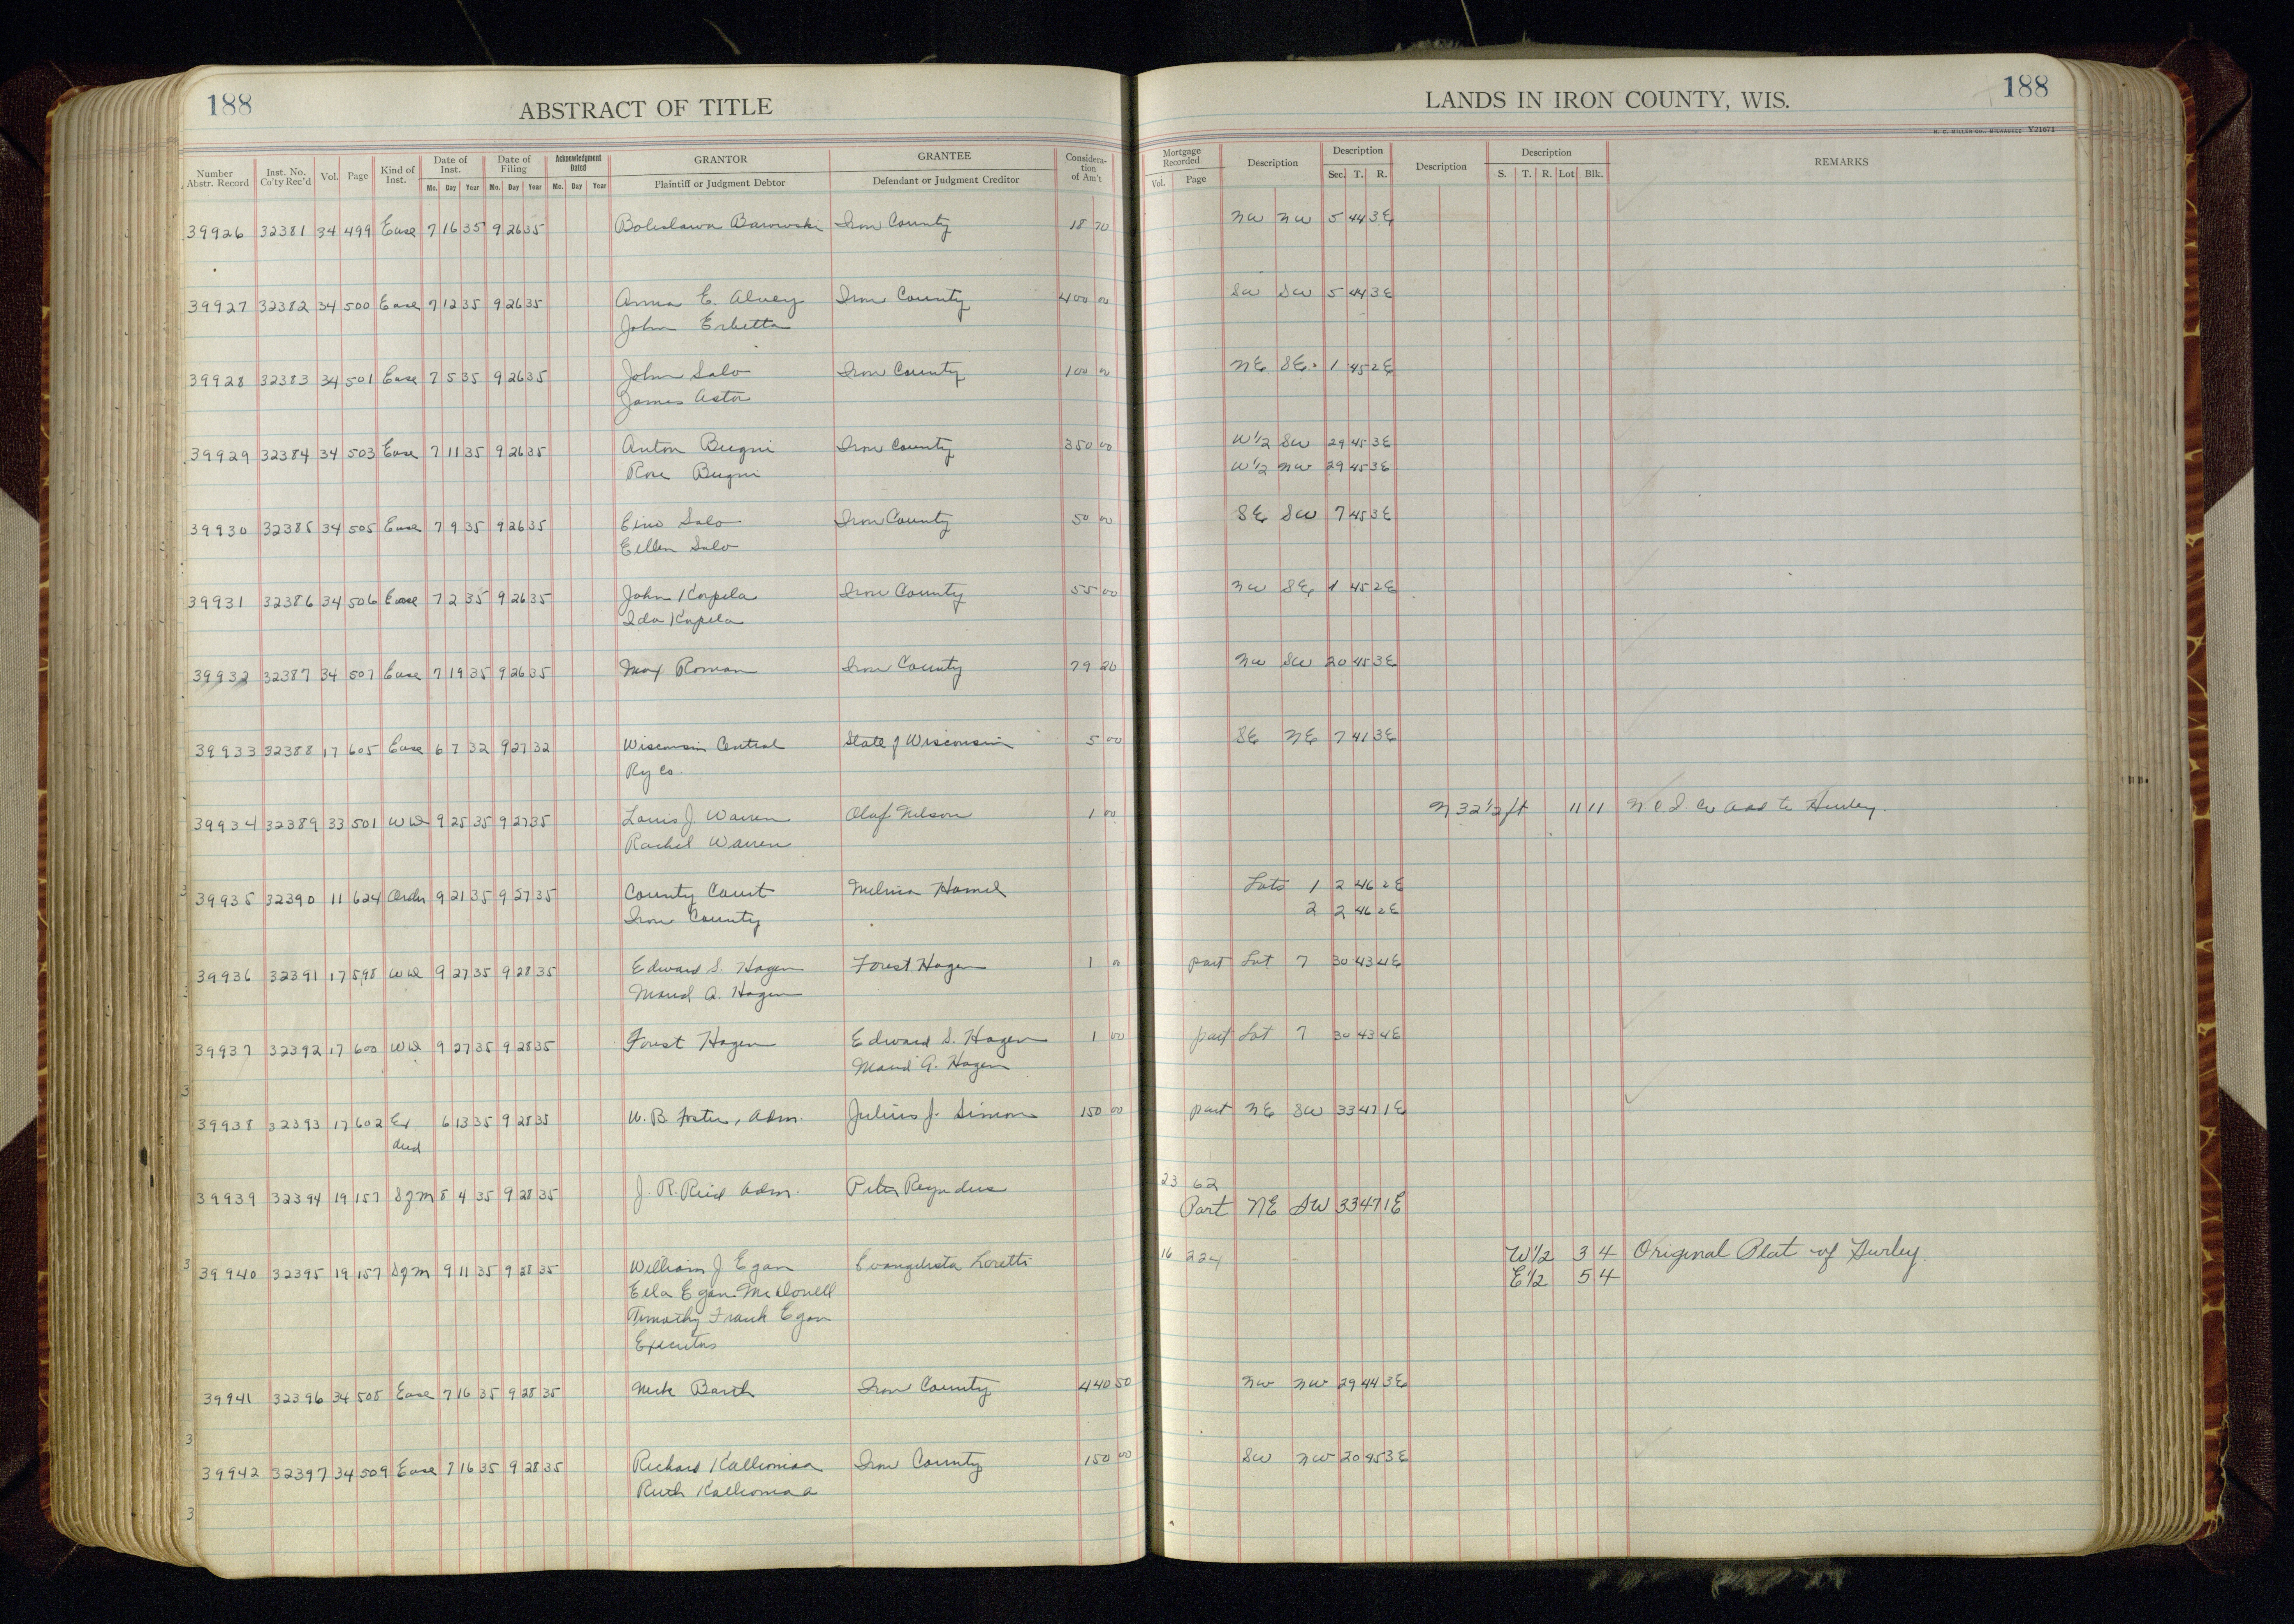 188
ABSTRACT OF TITLE
LANDS IN IRON COUNTY, WIS.
188
H. C. MILLER CO., MILWAUKEE Y21071
Number Abstr. Record Inst. No. Co'ty Rec'd Vol. Page Kind of Inst. Date of Inst. Mo. Day Year Date of Filing Mo. Day Year Acknowledgment Dated Mo. Day Year GRANTOR Plaintiff or Judgment Debtor GRANTEE Defendant or Judgment Creditor Consideration of Am't Mortgage Recorded Vol. Page Description Description Sec. T. R. Description Description S. T. R. Lot Blk. REMARKS
39926 32381 34 499 Ease 7 16 35 9 26 35 Boleslawa Barowski Iron County 18 70 NW NW 5 44 3E
39927 32382 34 500 Ease 7 12 35 9 26 35 Anna E. Alvey Iron County 400 00 SW SW 5 44 3E
John Erbetta
39928 32383 34 501 Ease 7 5 35 9 26 35 John Salo Iron County 100 00 NE SE 1 45 2E
James Aston
39929 32384 34 503 Ease 7 11 35 9 26 35 Anton Bugni Iron County 350 00 W1/2 SW 29 45 3E
Rose Bugni W1/2 NW 29 45 3E
39930 32385 34 505 Ease 7 9 35 9 26 35 Eino Salo Iron County 50 00 SE SW 7 45 3E
Eellen Salo
39931 32386 34 506 Ease 7 2 35 9 26 35 John Korpela Iron County 55 00 NW SE 1 45 2E
Ida Korpela
39932 32387 34 507 Ease 7 19 35 9 26 35 Max Roman Iron County 79 20 NW SW 20 45 3E
39933 32388 17 605 Ease 6 7 32 9 27 32 Wisconsin Central State of Wisconsin 5 00 SE NE 7 41 3E
Ry Co.
39934 32389 33 501 WD 9 25 35 9 27 35 Louis J Warren Olaf Nelson 1 00 N 32 1/2 ft 11 11 N C I Co Add to Hurley.
Rachel Warren
39935 32390 11 624 Order 9 21 35 9 27 35 County Court Melvina Hamel Lots 1 2 46 2E
Iron County 2 2 46 2E
39936 32391 17 598 WD 9 27 35 9 28 35 Edward S. Hagen Forest Hagen 1 00 part Lot 7 30 43 4E
Maud A. Hagen
39937 32392 17 600 WD 9 27 35 9 28 35 Forest Hagen Edward S. Hagen 1 00 part Lot 7 30 43 4E
Maud A. Hagen
39938 32393 17 602 Ex 6 13 35 9 28 35 W. B. Foster, Adm. Julius J. Simon 150 00 part NE SW 33 47 1E
deed
39939 32394 19 157 Sgm 8 4 35 9 28 35 J. R. Reid Adm. Peter Reynders 23 62
Part NE SW 33 47 1E
39940 32395 19 157 Sgm 9 11 35 9 28 35 William J Egan Evangelista Loretti 16 224 W1/2 3 4 Original Plat of Hurley.
Ella Egan McDonell E1/2 5 4
Timothy Frank Egan
Executors
39941 32396 34 508 Ease 7 16 35 9 28 35 Nick Barth Iron County 440 50 NW NW 29 44 3E
39942 32397 34 509 Ease 7 16 35 9 28 35 Richard Kalliomaa Iron County 150 00 SW NW 20 45 3E
Ruth Kalliomaa